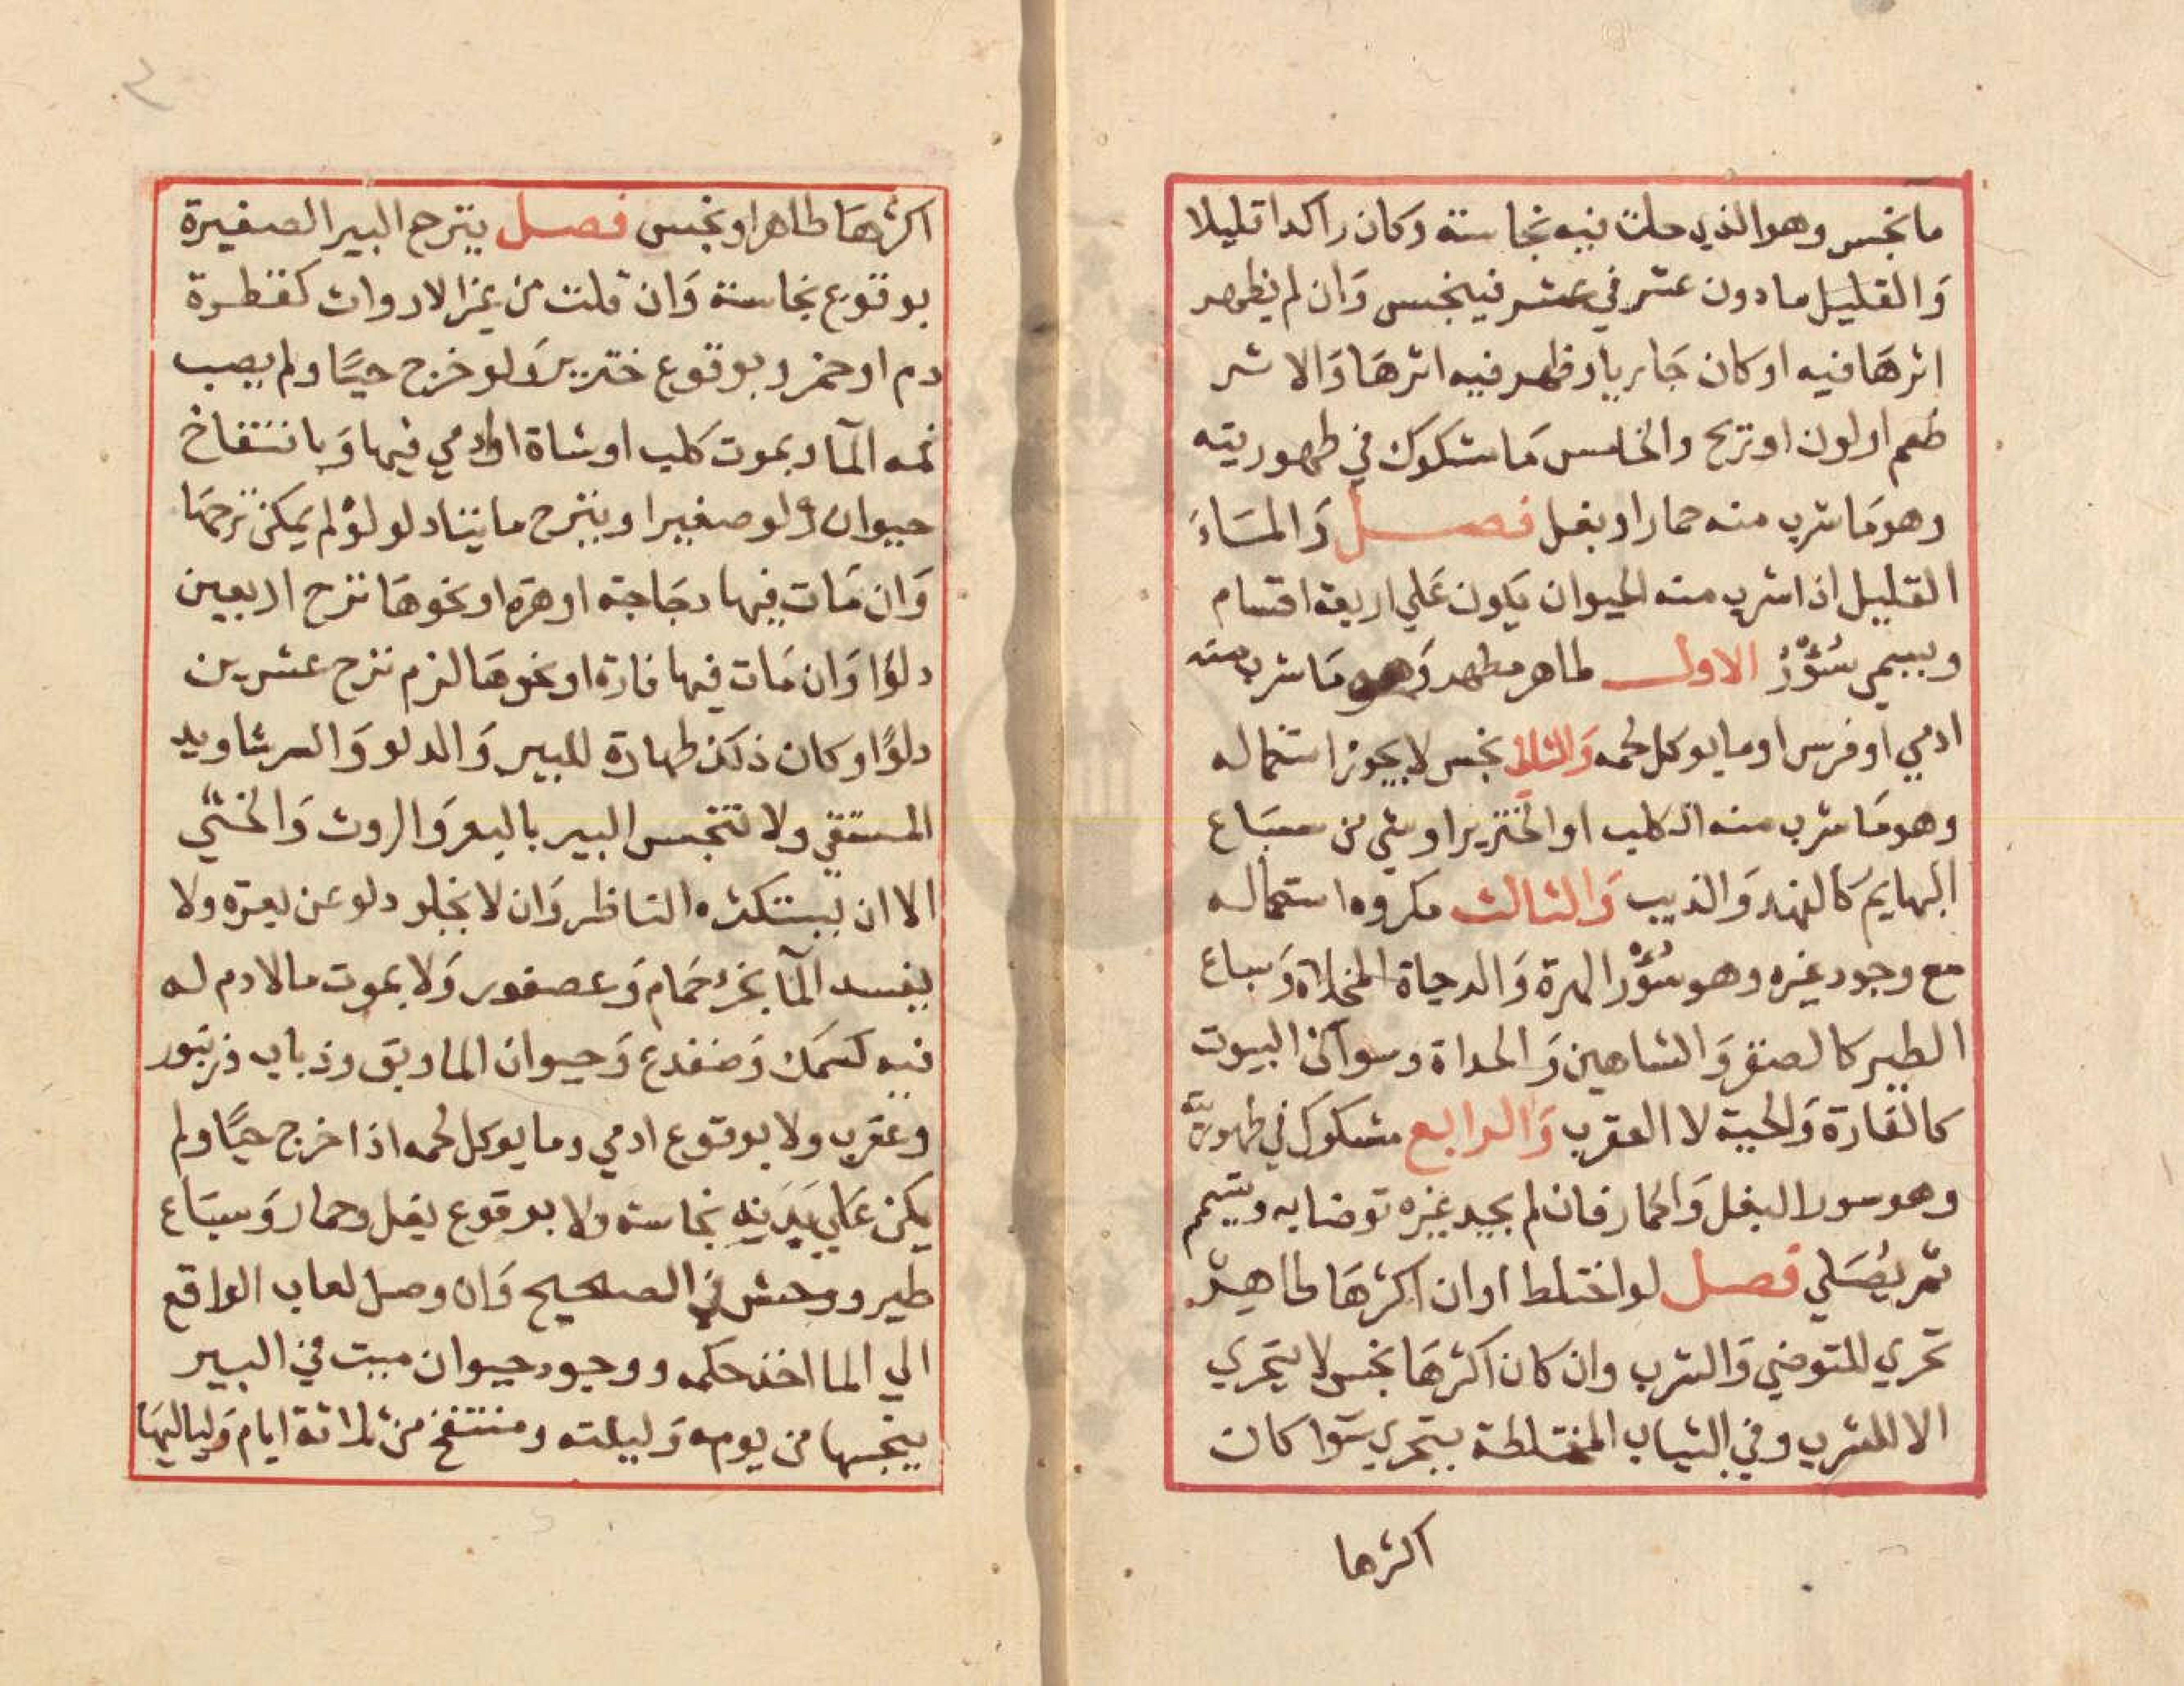 ما نجس وهو الذي حلت فيه نجاسة وكان راكدا قليلا
وَالقليل ما دون عشر في عشر فينجس وَان لم يظهر
اثرهَا فيه او كان جَاريا وظهر فيه اثرهَا وَالاثر
طعم او لون او ريح والخامس مَا مشكوك في طهوريته
وهو مَا شرب منه حمار او بغل فصل وَالمَاءُ
القليل اذا شرب منه الحيوان يكون عَلي اربعة اقسام
ويسمي سُؤْرًا الاول طاهر مطهر وَهو مَا شرب منه
ادمي او فرس او ما يوكل لحمه وَالثاني نجس لا يجوز استعماله
وهو مَا شرب منه الكلب او الخنزير او شي من سبَاع
البهايم كالفهد وَالذيب وَالثالث مكروه استعماله
مع وجود غيره وهو سُؤْر الهرة وَالدجاة المخلاة وَسباع
الطير كالصقر وَالشاهين وَالحداة وسواكن البيوت
كالفارة وَالحية لا العقرب وَالرابع مشكوك في طهوريته
وهو سور البغل وَالحمار فان لم يجد غيره توضا به ويتيمم
ثم يُصَلي فصل لو اختلط اوان اكثرهَا طاهر
تحري للتوضي وَالشرب وان كان اكثرهَا نجس لا يتحري
الا للشرب وفي الثياب المختلطة يتحري سَوا كان
اكثرها
٢
اكثرهَا طاهرا او نجس فصل ينزح البير الصغيرة
بوقوع نجاسة وَان قلت من غير الارواث كقطرة
دم او خمر وبوقوع خنزير وَلو خرج حيًا ولم يصب
فمه المآ وبموت كلب او شاة او ادمي فيها وَبانتفاخ
حيوان ولو صغيرا وينزح مايتا دلو لو لم يمكن نزحهَا
وَان مَات فيها دجَاجة او هرة او نحوهَا نزح اربعين
دلوًا وَان مَات فيها فارة او نحوهَا لزم نزح عشرين
دلوًا وكان ذلك طهارة للبير وَالدلو وَالرشا ويد
المستقي ولا تنجس البير بالبعر وَالروث وَالخثي
الا ان يستكثره الناظر وَان لا يخلو دلو عن بعرة ولا
يفسد المآ بخرءِ حمَام وَعصفور وَلا بموت ما لا دم له
فيه كسمَك وَضفدع وَحيوان الما وبق وذباب وزنبور
وعقرب ولا بوقوع ادمي وما يوكل لحمه اذا خرج حيًا ولم
يكن عَلي بَدَنِه نجاسة ولا بوقوع بغل وحمار وَسبَاع
طير ووحش في الصحيح وَان وصل لعاب الواقع
الي الما اخذ حكمه ووجود حيوان ميت في البير
ينجسها من يومه وَليلته ومنتفخ من ثلاثة ايام وَلياليهَا